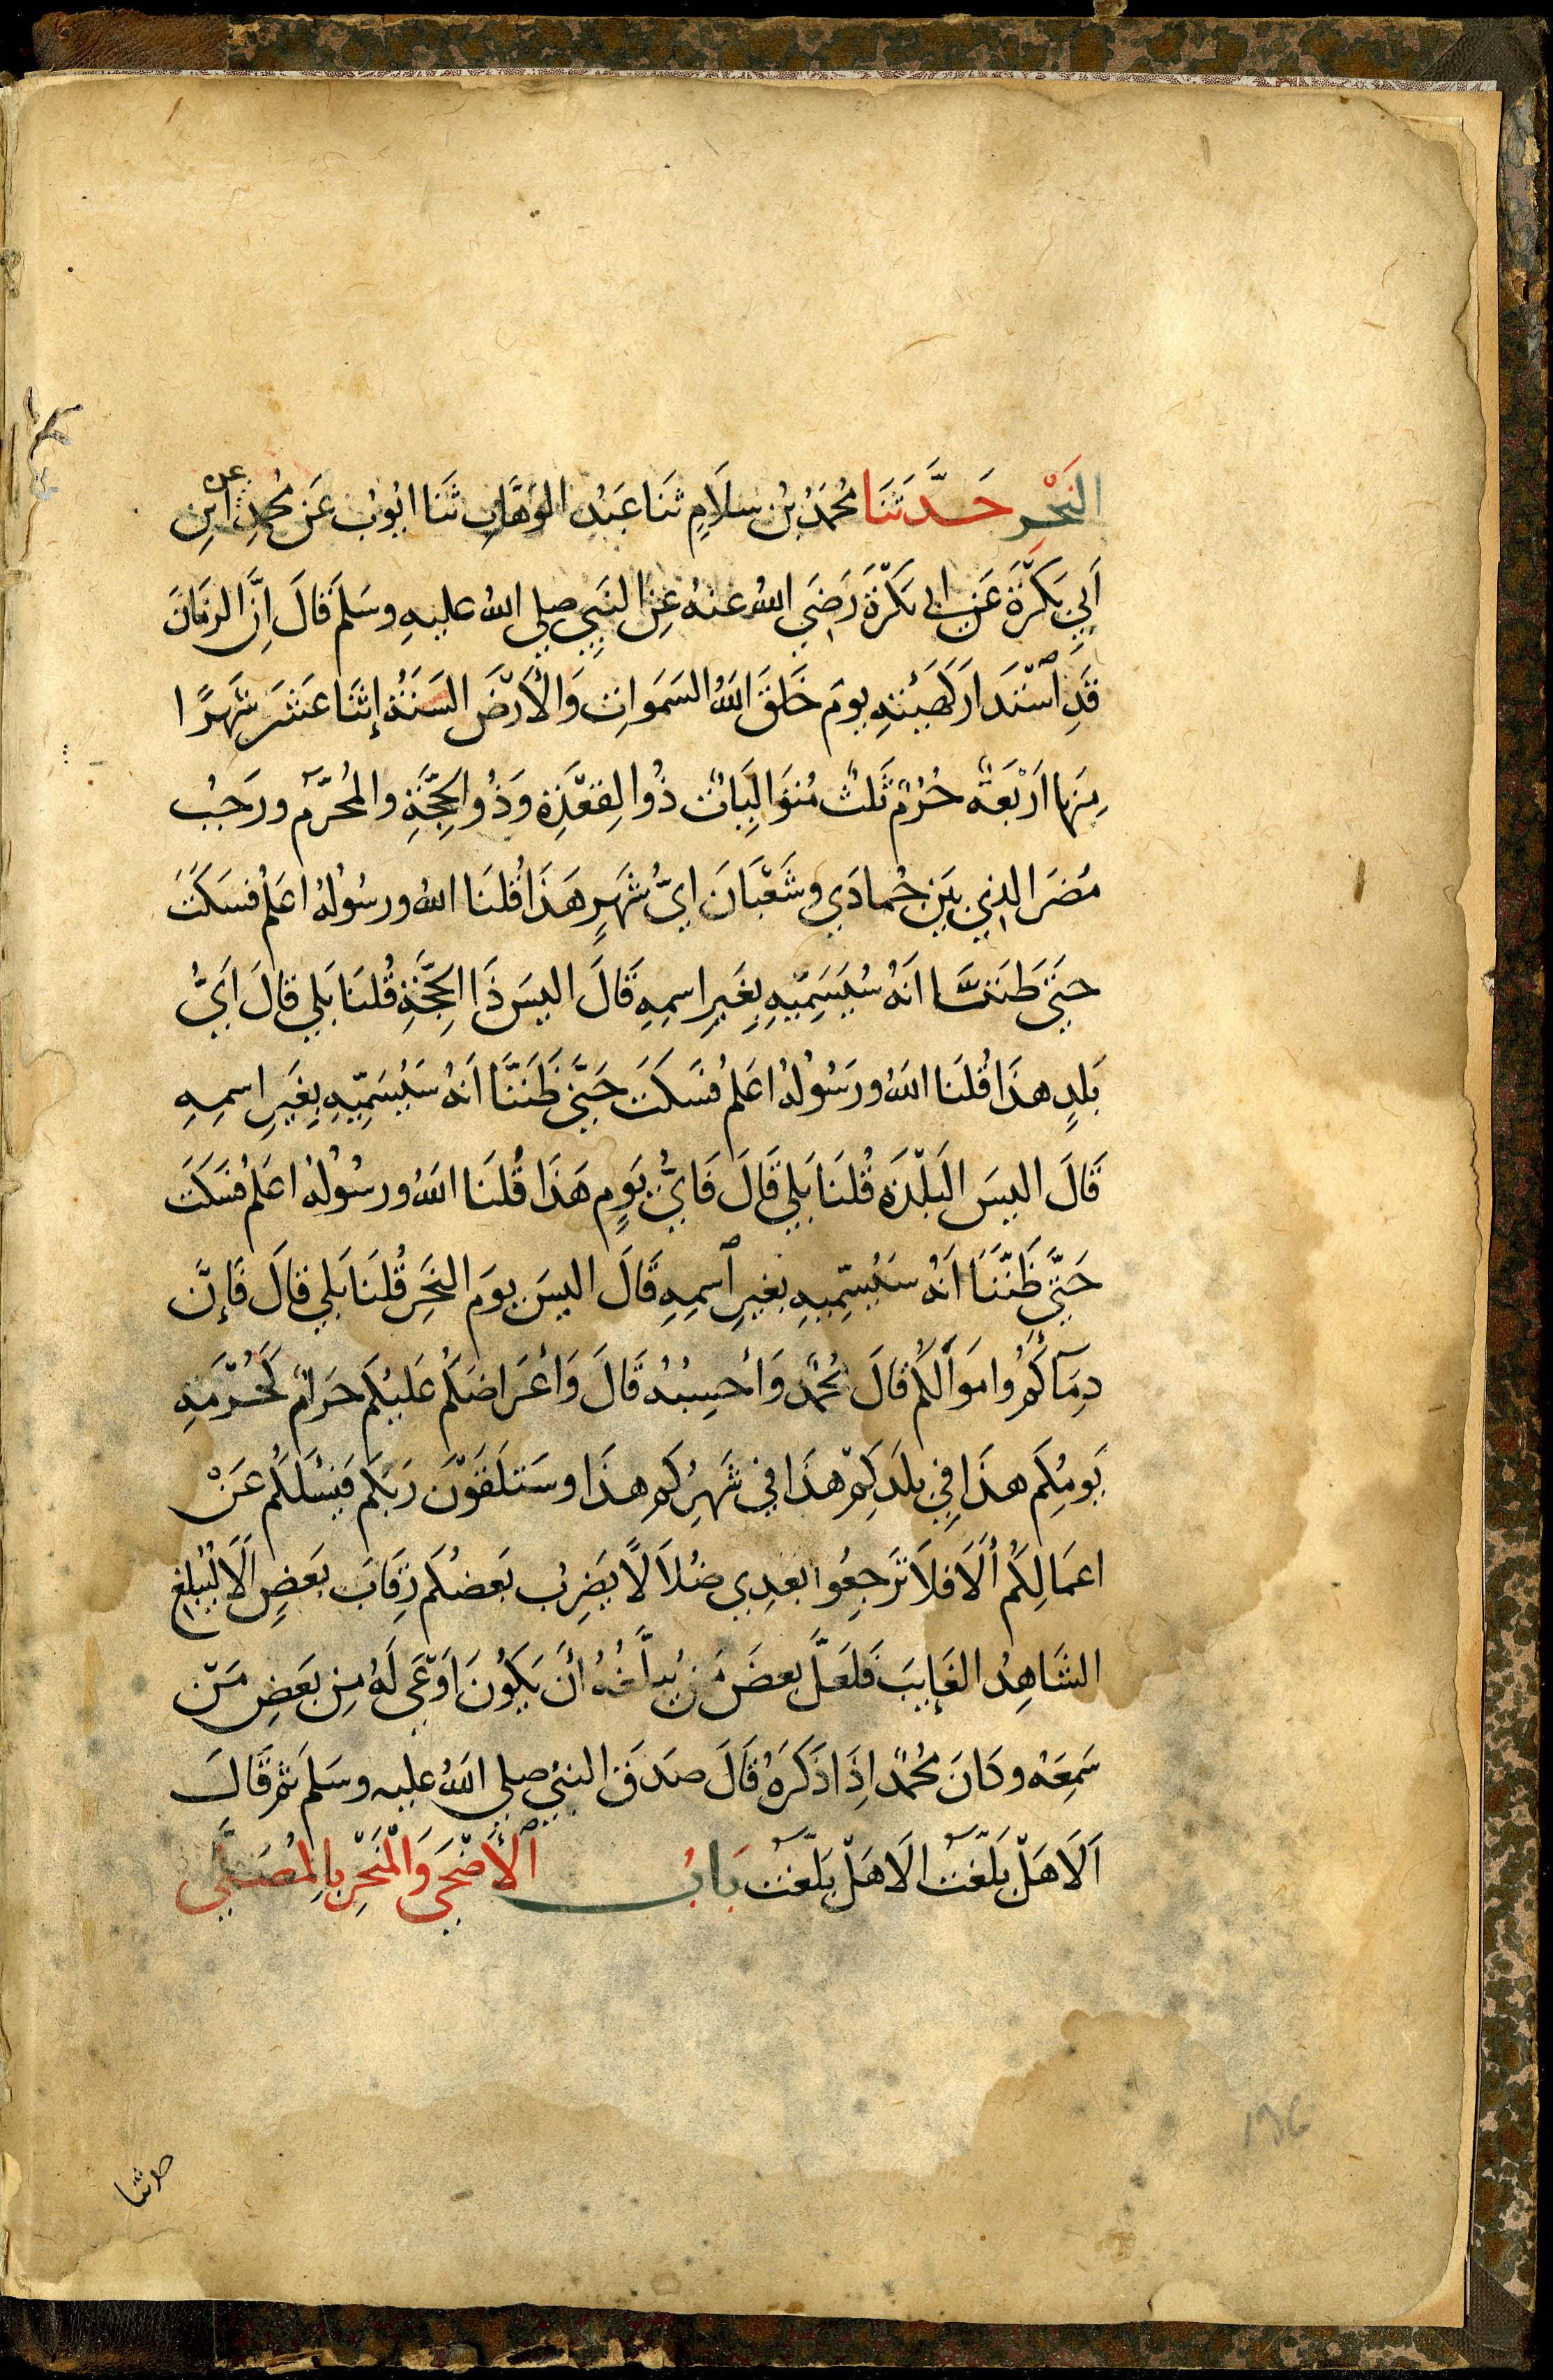 النَّحْرِ حَدَّثَنَا مُحَمَّدُ بْنُ سَلَامٍ ثَنَا عَبْدُ الوَهَّابِ ثَنَا ايُوبُ عَنْ مُحَمَّدٍ عن ابْنِ
أَبِي بَكْرَةَ عَنْ ابى بَكْرَةَ رَضِيَ اللهُ عنهُ عَنِ النَّبِيِّ صلى الله عليهِ وسَلمَ قَالَ اِنَّ الزمَانَ
قَدِ ٱسْتَدَارَ كَهَيْئَتِهِ يومَ خَلَقَ اللهُ السَمَواتِ وَالأَرْضَ السَنَةُ إثنَا عَشَرَ شَهرًا
مِنها اَرْبَعَةٌ حُرُمٌ ثَلثٌ مُتوَالِيَاتٌ ذُوا لقَعْدَةِ وَذُوا لحِجَّةِ والمُحَرَّم ورَجَبُ
مُضَرَ الذِي بَيْنَ جُمادَي وشَعْبَانَ ايُّ شَهرٍ هَذَا قُلنَا الله ورسُولُهُ اعلمُ فسَكَتَ
حَتَّى ظنَنَّا انَهُ سَيُسَمِّيهِ بِغَيرِ اسمِهِ قَالَ اليسَ ذَا الحِجَّةِ قُلنَا بَلي قالَ اَيُّ
بَلدٍ هذَا قُلنَا اللهُ ورَسُولُهُ اعلمُ فسَكَتَ حَتَّى ظَنَنَّا اَنهُ سَيُسَمِّيهِ بِغَيرِ اسمِهِ
قَالَ اليسَ البَلْدَة قُلنَا بَلي قَالَ فَايُّ يَومٍ هَذَا قُلنَا اللهُ ورسُولُهُ اعلمُ فسَكَتَ
حَتَّى ظَنَنَّا انهُ سَيُسَمِّيهِ بغيرِ ٱسمِهِ قَالَ اليسَ يومَ النحرِ قُلنَا بَلي قالَ فَإنَّ
دِمَآكُم وامَوالكُم قَالَ مُحَمَّدٌ وَأحسِبُهُ قَالَ وَأعْرَاضَكُم عَليْكُم حَرَامٌ كَحُرْمَةِ
يَومِكُم هذَا فِي بلَدِكُمْ هذَا في شَهرِكُم هذَا وسَتلقَوْنَ رَبَّكُم فَيسْئلكُم عَنْ
اعمَالِكُمْ أَلَا فلَا تَرجِعُوا بَعدِي ضُلَّالًا يَضرِبُ بَعضُكُم رِقَابَ بَعضٍ أَلَا ليُبلغِ
الشَاهِدُ الغَايبَ فَلعَلَّ بعضَ مَنْ يُبلَّغُهُ أنْ يَكُونَ اَوعَي لَهُ مِن بَعَضِ مَنْ
سَمِعَهُ وكانَ مُحَمَّدٌ اِذَا ذَكَرَهُ قَالَ صَدَقَ النبيُّ صلى اللهُ عليه وسَلمَ ثم قَالَ
اَلَا هَلْ بَلَّغتُ الَا هَلْ بَلَّغتُ بَابُ ٱلأَضْحَى وَالْمَنْحَرِ بِالمُصَلَّى
حدثنا